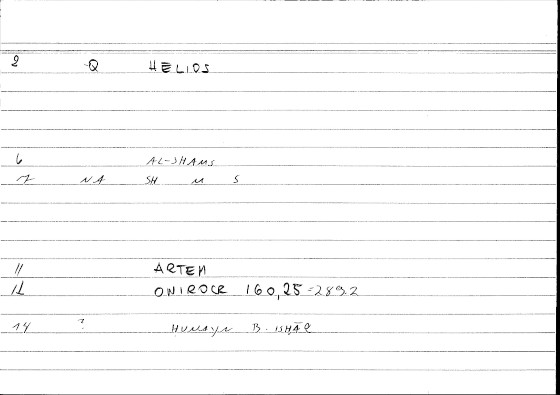 2 Q HELIOS
6 AL-SHAMS
7 NA SH M S
11 ARTEM
12 ONIROCR 160,25=2892
14 ? HUNAYN B. ISHĀQ